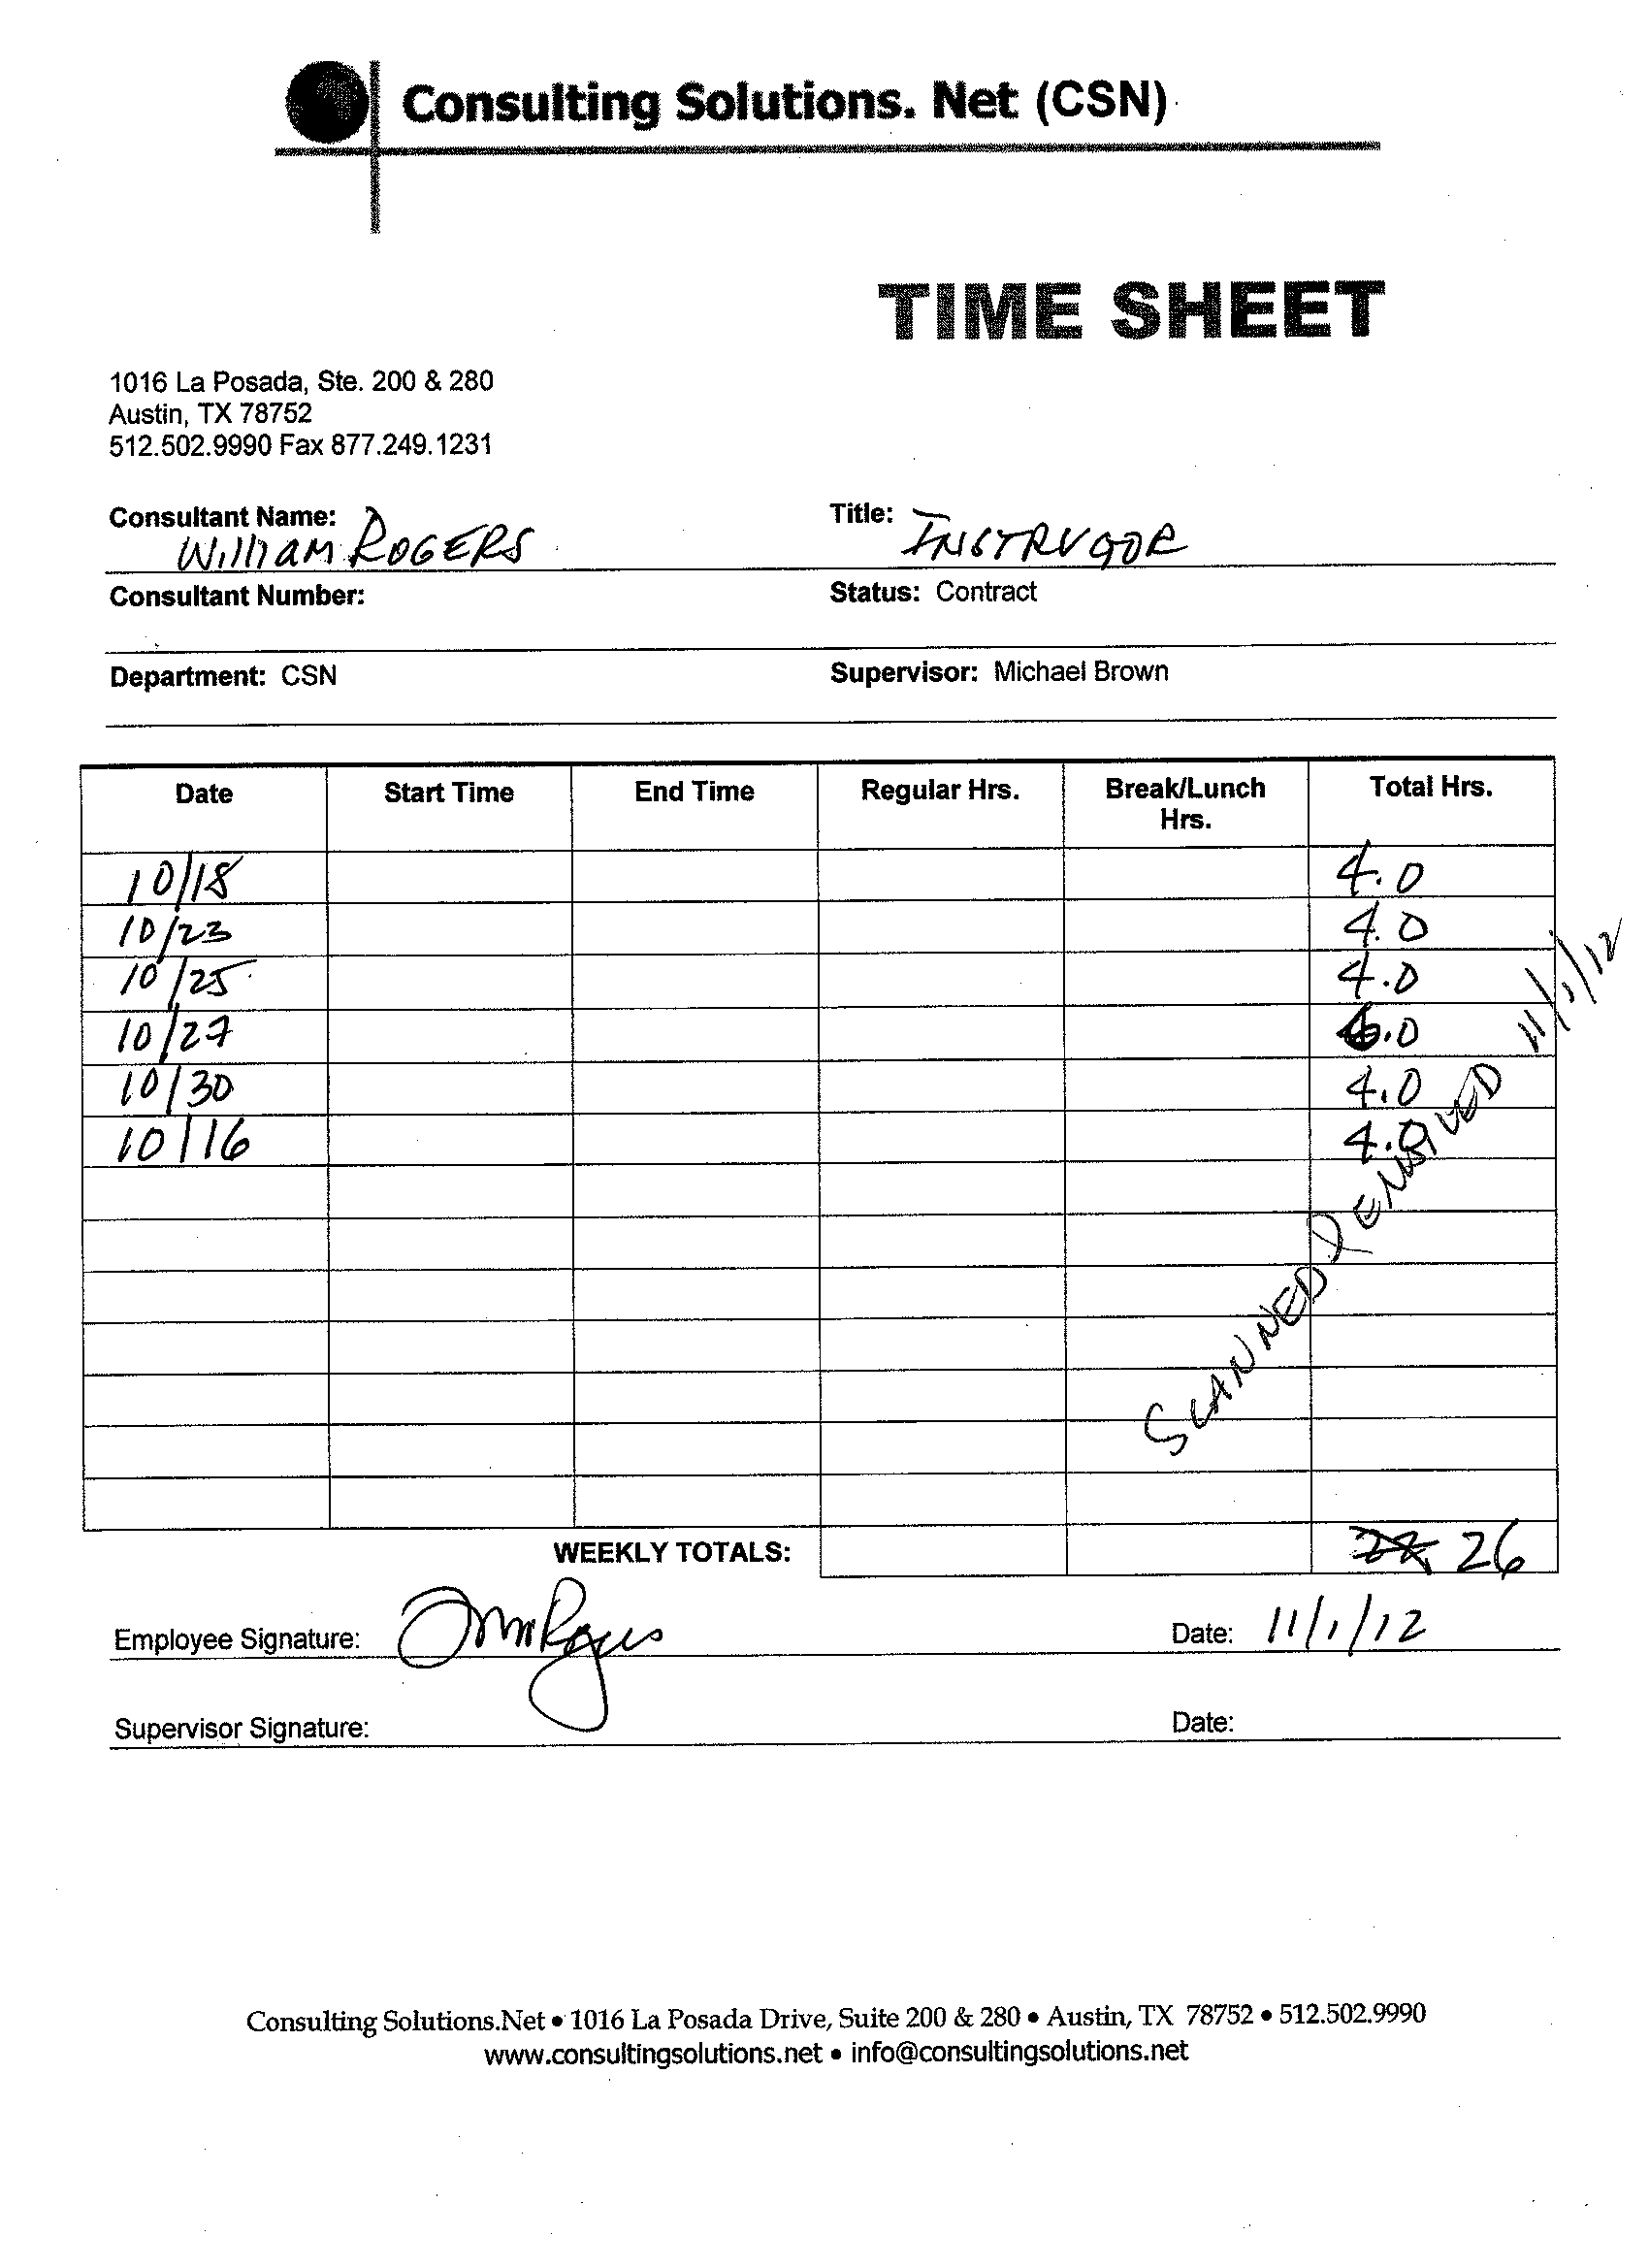 Consulting Solutions. Net (CSN)
TIME SHEET
1016 La Posada, Ste. 200 & 280
Austin, TX 78752
512.502.9990 Fax 877.249.1231
Consultant Name: William ROGERS Title: INSTRUCTOR
Consultant Number: Status: Contract
Department: CSN Supervisor: Michael Brown
Date Start Time End Time Regular Hrs. Break/Lunch Hrs. Total Hrs.
10/18 4.0
10/23 4.0
10/25 4.0
10/27 6.0
10/30 4.0
10/16 4.0
SCANNED & 11/1/12
WEEKLY TOTALS: 26
Employee Signature: Date: 11/1/12
Supervisor Signature: Date:
Consulting Solutions.Net • 1016 La Posada Drive, Suite 200 & 280 • Austin, TX 78752 • 512.502.9990
www.consultingsolutions.net • info@consultingsolutions.net